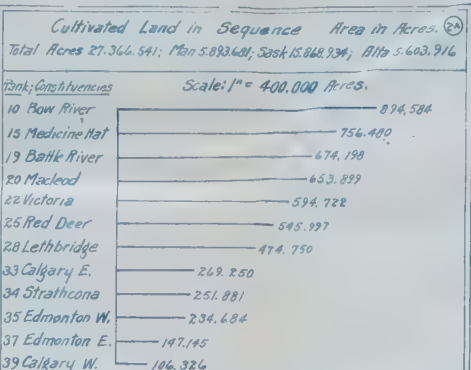 Cultivated Land in Sequence Area in Acres. 2A
Total Acres 27.366.541; Man 5.893.681; Sask 15.868.934; Alta 5.603.916
Rank; Constituencies Scale: 1" = 400,000 Acres.
10 Bow River 894.584
15 Medicine Hat 756.480
19 Battle River 674.198
20 Macleod 653.899
22 Victoria 594.722
25 Red Deer 545.997
28 Lethbridge 474.750
33 Calgary E. 269.250
34 Strathcona 251.881
35 Edmonton W. 234.684
37 Edmonton E. 147.145
39 Calgary W. 106.326